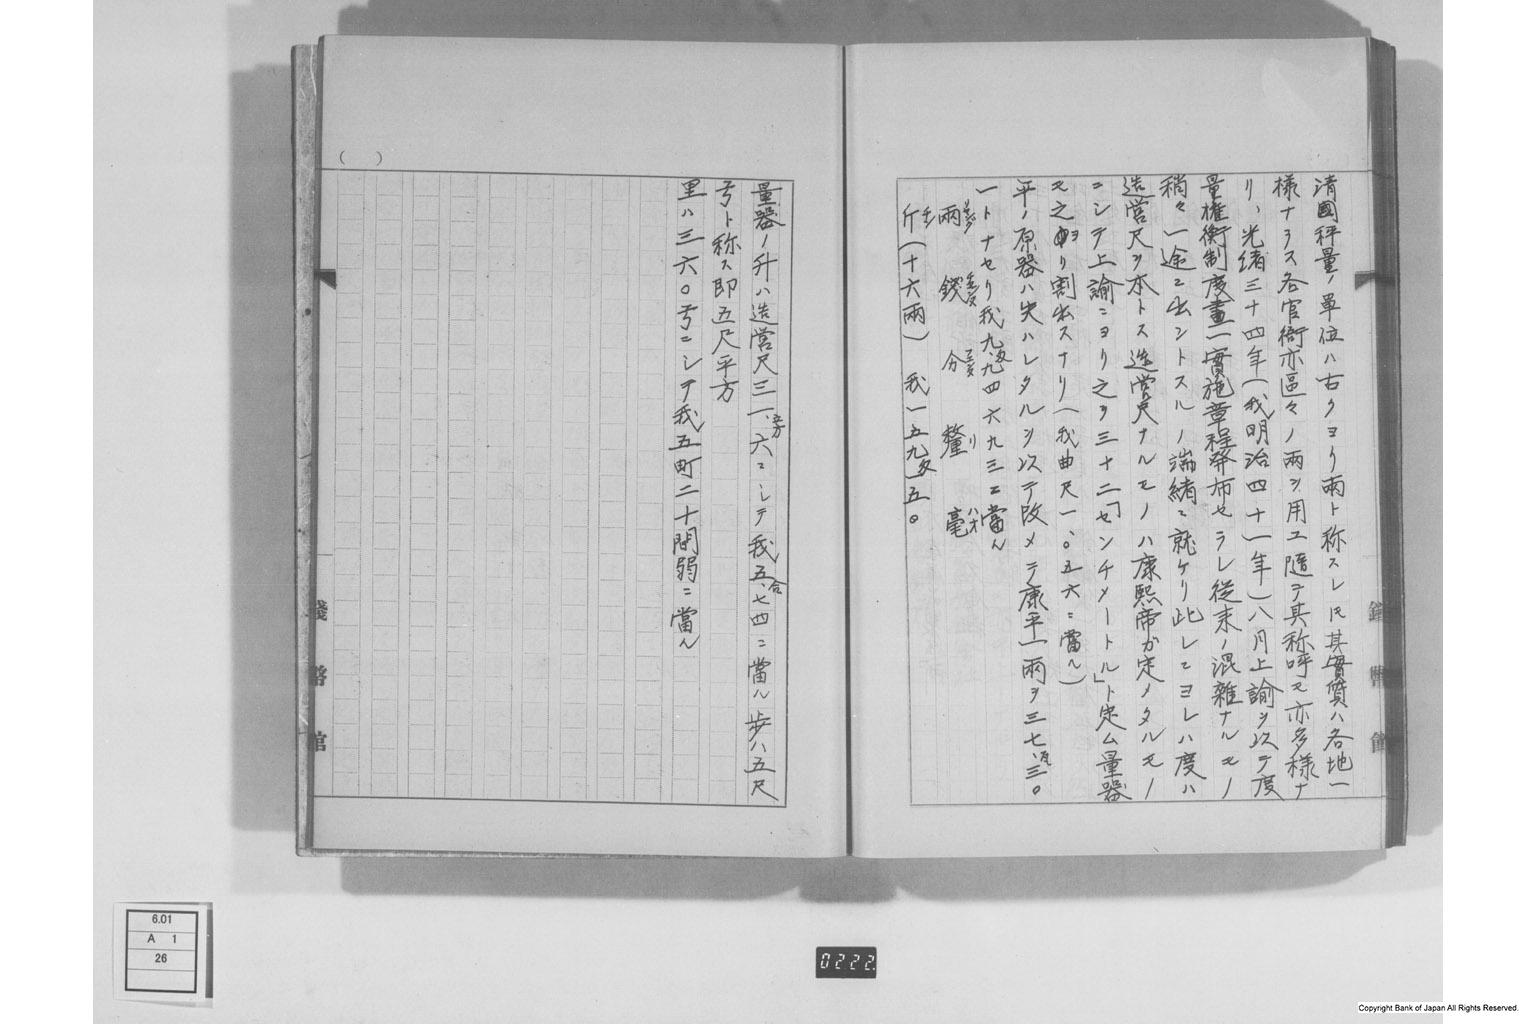 清國秤量ノ單位ハ古クヨリ兩ト称スレ𪜈其實質ハ各地一
様ナラス各官衙亦區々ノ兩ヲ用ユ隨テ其称呼モ亦多様ナ
リ、光緒三十四年(我明治四十一年)八月上諭ヲ以テ度
量權衡制度畫一實施章程發布セラレ従来ノ混雜ナルモノ
稍々一途ニ出ントスルノ端緒ニ就ケリ此レニヨレハ度ハ
造営尺ヲ本トス造営尺ナルモノハ康熙帝ガ定メタルモノ
ニシテ上諭ニヨリ之ヲ三十二「センチメートル」ト定ム量器
モ之ヨリ割出スナリ(我曲尺一、〇五六ニ當ル)
平ノ原器ハ失ハレタルヲ以テ改メテ庫平一兩ヲ三七、瓦三〇
一トナセリ我九、匁九四六九三ニ當ル
兩 錢 分 釐 毫
斤(十六兩) 我一五九匁五〇
量器ノ升ハ造営尺三一、立方六ニシテ我五、合七四ニ當ル歩ハ五尺
弓ト称ス即五尺平方
里ハ三六〇弓ニシテ我五町二十間弱ニ當ル
( )
錢幣館
錢幣館
6.01
A 1
26
0222
Copyright Bank of Japan All Rights Reserved.